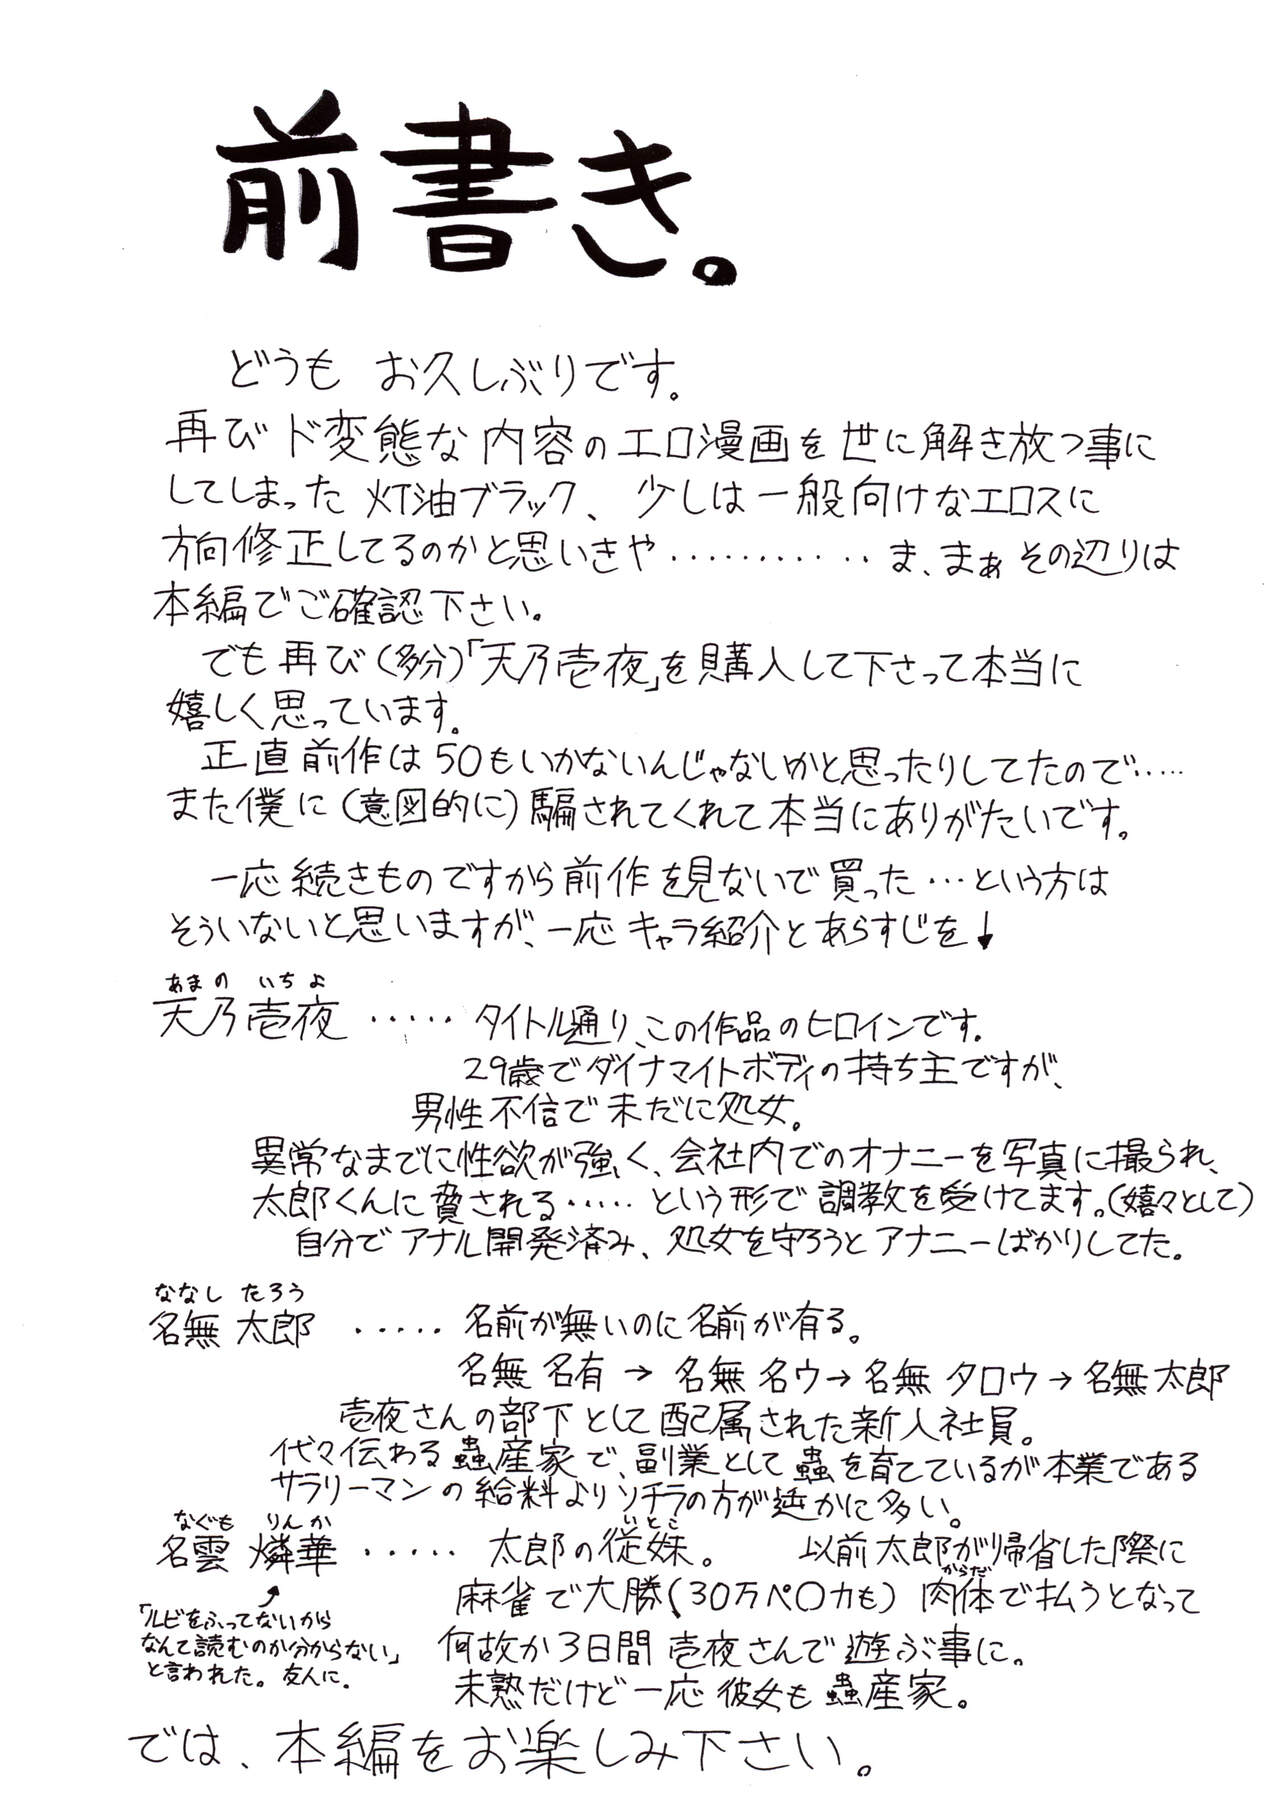 前書き。
どうも お久しぶりです。
再び ド変態な 内容のエロ漫画を 世に解き放つ事に
してしまった 灯油ブラック、少しは一般向けなエロスに
方向修正してるのかと思いきや・・・・・・・・・・・ま、まぁ その辺りは
本編でご確認下さい。
でも 再び(多分)「天乃壱夜」を購入して下さって本当に
嬉しく思っています。
正直前作は50もいかないんじゃないかと思ったりしてたので・・・・・
また僕に(意図的に)騙されてくれて本当にありがたいです。
一応続きものですから前作を見ないで買った・・・という方は
そういないと思いますが、一応 キャラ紹介とあらすじを↓
あまの いちよ
天乃壱夜 ・・・・・ タイトル通り、この作品のヒロインです。
29歳でダイナマイトボディの持ち主ですが、
男性不信で未だに処女。
異常なまでに性欲が強く、会社内でのオナニーを写真に撮られ、
太郎くんに脅される・・・・・という形で調教を受けてます。(嬉々として)
自分でアナル開発済み、処女を守ろうとアナニーばかりしてた。
ななし たろう
名無 太郎 ・・・・・ 名前が無いのに名前が有る。
名無 名有 → 名無 名ウ → 名無 タロウ → 名無 太郎
壱夜さんの部下として配属された新人社員。
代々伝わる蟲産家で、副業として蟲を育てているが本業である
サラリーマンの給料よりソチラの方が遥かに多い。
なぐも りんか
名雲 燐華 ・・・・・ 太郎の従妹。 以前太郎が帰省した際に
いとこ
麻雀で大勝(30万ペ〇カも) 肉体で払うとなって
からだ
何故か3日間 壱夜さんで遊ぶ事に。
未熟だけど一応 彼女も 蟲産家。
↑
「ルビをふってないから
なんて読むのか分からない」
と言われた。友人に。
では、本編をお楽しみ下さい。